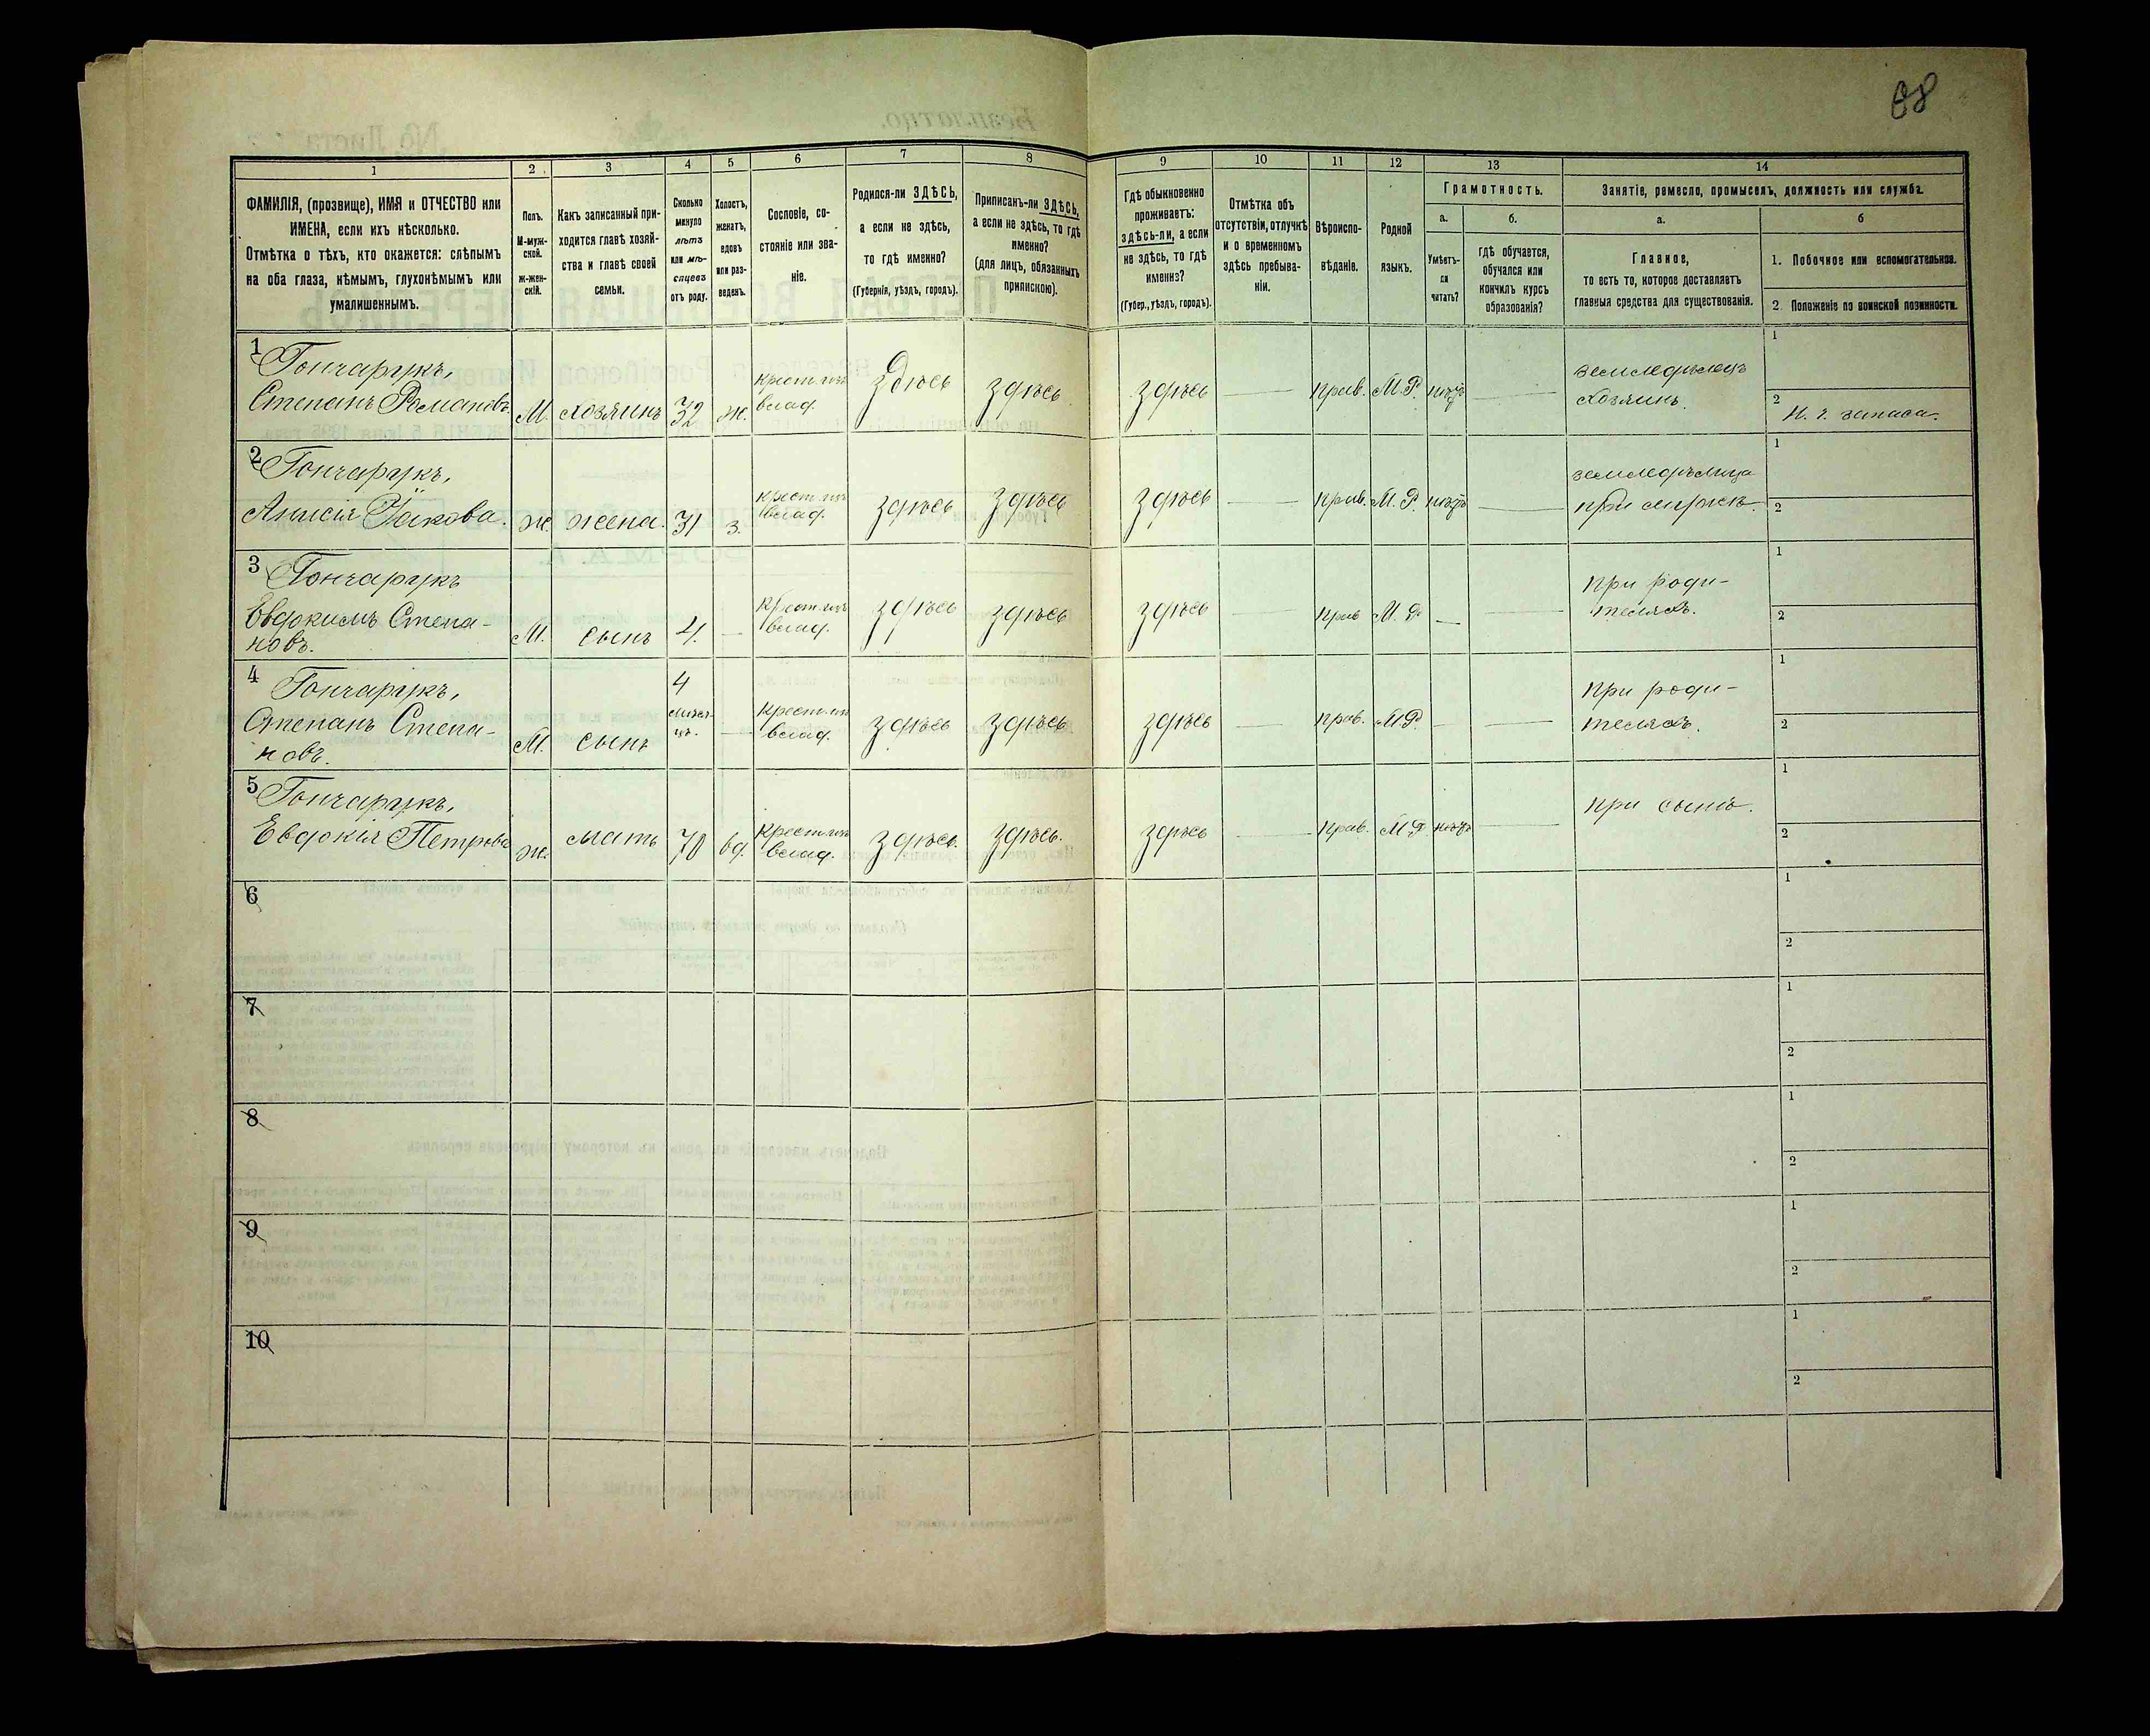 88
1
2
3
4
5
6
7
8
9
10
11
12
13
14
ФАМИЛІЯ, (прозвище), ИМЯ и ОТЧЕСТВО или
ИМЕНА, если ихъ нѣсколько.
Отмѣтка о тѣхъ, кто окажется: слѣпымъ
на оба глаза, нѣмымъ, глухонѣмымъ или
умалишеннымъ.
Полъ.
М-муж-
ской.
ж-жен-
скій.
Какъ записанный при-
ходится главѣ хозяй-
ства и главѣ своей
семьи.
Сколько
минуло
лѣтъ
или мѣ-
сяцевъ
отъ роду.
Холостъ,
женатъ,
вдовъ
или раз-
веденъ.
Сословіе, со-
стояніе или зва-
ніе.
Родился-ли ЗДѢСЬ,
а если не здѣсь,
то гдѣ именно?
(Губернія, уѣздъ, городъ).
Приписанъ-ли ЗДѢСЬ,
а если не здѣсь, то гдѣ
именно?
(для лицъ, обязанныхъ
припискою).
Гдѣ обыкновенно
проживаетъ:
здѣсь-ли, а если
не здѣсь, то гдѣ
именно?
(Губер., уѣздъ, городъ).
Отмѣтка объ
отсутствіи, отлучкѣ
и о временномъ
здѣсь пребыва-
ніи.
Вѣроиспо-
вѣданіе.
Родной
языкъ.
Грамотность.
а.
Умѣетъ-
ли
читать?
б.
гдѣ обучается,
обучался или
кончилъ курсъ
образованія?
Занятіе, ремесло, промыселъ, должность или служба.
а.
Главное,
то есть то, которое доставляетъ
главныя средства для существованія.
б
1. Побочное или вспомогательное.
2. Положеніе по воинской повинности.
1
Гончарукъ,
Степанъ Романовъ.
М.
хозяинъ
32
ж.
крест. изъ
влад.
здѣсь
здѣсь
здѣсь
—
прав.
М.Р.
нѣтъ
—
земледѣлецъ
хозяинъ.
1
2
Н. ч. запаса.
2
Гончарукъ,
Анисія Якова.
ж.
жена.
31
з.
крест. изъ
влад.
здѣсь
здѣсь
здѣсь
—
прав.
М.Р.
нѣтъ
—
земледѣлица
при мужѣ.
1
2
3
Гончарукъ
Евдокимъ Степа-
новъ.
М.
сынъ
4.
—
крест. изъ
влад.
здѣсь
здѣсь
здѣсь
—
прав
М.Р.
—
—
при роди-
теляхъ.
1
2
4
Гончарукъ,
Степанъ Степа-
новъ.
М.
сынъ
4
мѣся-
цъ.
—
крест. изъ
влад.
здѣсь
здѣсь
здѣсь
—
прав.
М.Р.
—
—
при роди-
теляхъ.
1
2
5
Гончарукъ,
Евдокія Петрова
ж.
мать
70
вд.
крест. изъ
влад.
здѣсь.
здѣсь.
здѣсь
—
прав.
М.Р.
нѣтъ
—
при сынѣ.
1
2
6
1
2
7
1
2
8
1
2
9
1
2
10
1
2